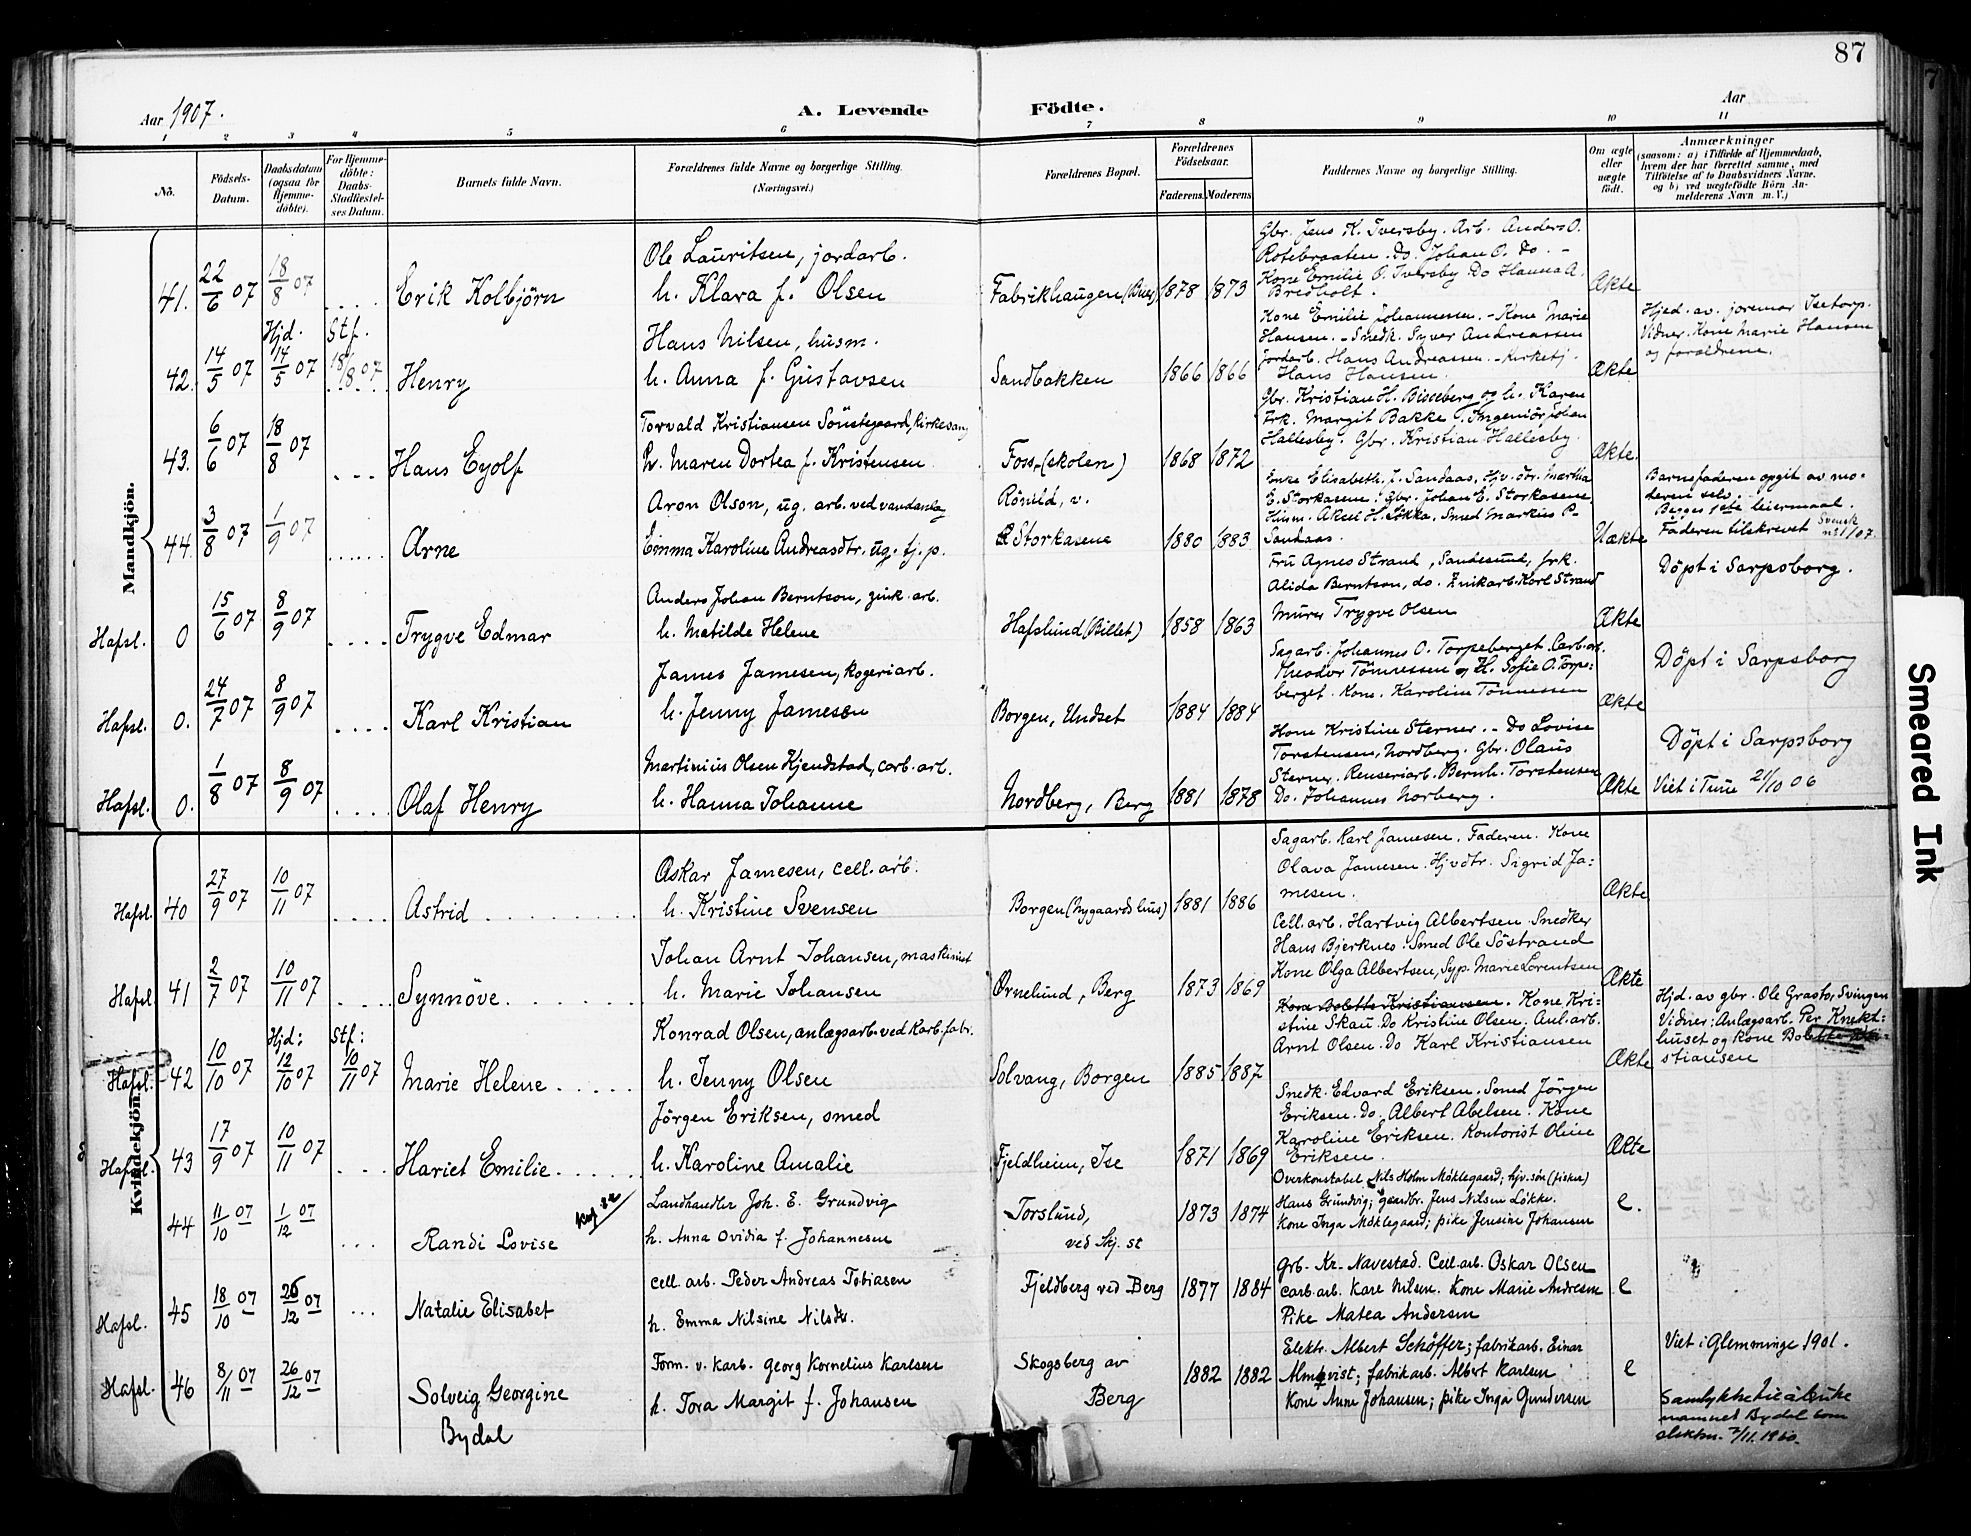 87
Aar 1907.
A. Levende Födte.
Aar
1 2 3 4 5 6 7 8 9 10 11
No.
Födsels-Datum.
Daabsdatum (ogsaa for Hjemmedöbte).
For Hjemmedöbte: Daabs-Stadfæstelses Datum.
Barnets fulde Navn.
Forældrenes fulde Navne og borgerlige Stilling.
(Næringsvei.)
Forældrenes Bopæl.
Forældrenes Födselsaar.
Faderens. Moderens
Faddernes Navne og borgerlige Stilling.
Om ægte eller uægte födt.
Anmærkninger
(saasom: a) i Tilfælde af Hjemmedaab, hvem der har forrettet samme, med Tilföielse af to Daabsvidners Navne, og b) ved uægtefödte Börn Anmelderens Navn m. V.)
Mandkjön.
41. 22/6 07 18/8 07 .... Erik Kolbjörn
Ole Lauritsen, jordarb.
h. Klara f. Olsen
Fabrikhaugen (Buer) 1878 1873
Gbr. Jens K. Iversby. Arb. Anders O.
Rotebraaten. Do. Johan O. Do. -
Kone Emilie O. Iversby Do Hanna A.
Bredholt.
Ækte
42. 14/5 07 Hjd. 14/5 07 Stf. 18/8 07 Henry
Hans Nilsen, husm.
h. Anna f. Gustavsen
Sandbakken 1866 1866
Kone Emilie Johannessen. - Kone Marie
Hansen. - Snedk. Syver Andreassen
Jordarb. Hans Andreassen. - Kirketj.
Hans Hansen.
Ækte
Hjed. av. jormor Isetorp.
Vidner. Kone Marie Hansen
og forældrene.
43. 6/6 07 18/8 07 ... Hans Eyolf
Torvald Kristiansen Sönstegaard, Kirkesang
h. Maren Dortea f. Kristensen
Foss, (skolen) 1868 1872
Gbr. Kristian H. Bisseberg og h. Karen
Frk. Margit Bakke. Ingeniör Johan
Hallesby. Gbr. Kristian Hallesby.
Ækte.
44. 3/8 07 1/9 07 ...... Arne
Aron Olson, ug. arb. ved vandanlæg
Emma Karoline Andreasdtr. ug. tj. p.
Rönild, v.
Storkasene 1880 1883
Enke Elisabeth J. Sandaas, Hjv. dtr. Martha
E. Storkasene. Gbr. Johan E. Storkasene,
Husm. Aksel H. Lökka. Smed Markus P.
Sandaas.
Uækte
Barnefaderen opgit av moderen selv.
Begges 1ste leiermaal.
Faderen tilskrevet
Hafsl. 0 15/6 07 8/9 07 .... Trygve Edmar
Anders Johan Berntson, zink. arb.
h. Matilde Helene
Hafslund (Billet) 1858 1863
Fru Agnes Strand, Sandesund, frk.
Alida Berntson, do. Zinkarb. Karl Strand
Murer Trygve Olsen
Ækte
Döpt i Sarpsborg.
Hafsl. 0. 24/7 07 8/9 07 .... Karl Kristian
James Jamesen, kogeriarb.
h. Jenny Jamesen
Borgen, Undset 1884 1884
Sagarb. Johannes O. Torpeberget. Carb. arb.
Theodor Tönnessen og H. Sofie O. Torpeberget. Kone Karoline Tönnessen
Ækte
Döpt i Sarpsborg
Hafsl. 0. 1/8 07 8/9 07 .... Olaf Henry
Martinius Olsen Kjendstad, carb. arb.
h. Hanna Johanne
Nordberg, Berg 1881 1878
Kone Kristine Sterner. - Do Lovise
Torstensen, Nordberg. Gbr. Olaus
Sterner. Renseriarb. Bernh. Torstensen
Do. Johannes Norberg.
Ækte
Döpt i Sarpsborg
Viet i Tune 21/10 06
Kvindekjön.
Hafsl. 40 27/9 07 10/11 07 .... Astrid
Oskar Jamesen, cell. arb.
h. Kristine Svensen
Borgen (Nygaards hus) 1881 1886
Sagarb. Karl Jamesen. Faderen. Kone
Olava Jamesen. Hjvdtr. Sigrid Ja:
mesen.
Ækte
Hafsl. 41 2/7 07 10/11 07 .... Synnöve
Johan Arnt Johansen, maskinist
h. Marie Johansen
Ørnelund, Berg 1873 1869
Cell. arb. Hartvig Albertsen. Snedker
Hans Bjerknes. Smed Ole Söstrand
Kone Olga Albertsen, Syp. Marie Lorentsen
Ækte
Hafsl. 42 10/10 07 Hjd: 12/10 07 Stf: 10/11 07 Marie Helene
Konrad Olsen, anlægsarb. ved Karb. fabr.
h. Jenny Olsen
Solvang, Borgen 1885 1887
Kone Bolette Kristiansen. Kone Kri:
stine Skau. Do Kristine Olsen. Anl. arb.
Arnt Olsen. Do Karl Kristiansen
Ækte
Hjd. av gbr. Ole Grasto, Svingen
Vidner: Anlægsarb. Per Knekt:
huset og kone Bolette Kri:
stiansen
Hafsl. 43 17/9 07 10/11 07 ... Hariet Emilie
Jörgen Eriksen, smed
h. Karoline Amalie
Fjeldheim, Ise 1871 1869
Snedk. Edvard Eriksen. Smed Jörgen
Eriksen. Do. Albert Abelsen. Kone
Karoline Eriksen. Kontorist Oline
Eriksen.
Ækte
44 11/10 07 1/12 07 ... Randi Lovise
Landhandler Joh. E. Grundvig
h. Anna Ovidia f. Johannesen
Torslund,
ved Skj. st 1873 1874
Overkonstabel Nils Holm Möklegaard; hjv. sön (fisker)
Hans Grundvig; gaardbr. Jens Nilsen Lökke.
Kone Inga Möklegaard; pike Jensine Johansen
e.
Hafsl. 45 18/10 07 26/12 07 ... Natalie Elisabet
Cell. arb. Peder Andreas Tobiasen
h. Emma Nilsine Nilsdtr.
Fjeldberg ved Berg 1877 1884
Grb. Kr. Navestad. Cell. arb. Oskar Olsen
Carb. arb. Kare Nilsen. Kone Marie Andresen
Pike Matea Andersen
e
Hafsl. 46 8/11 07 26/12 07 Solveig Georgine
Bydal
Form. v. karb. Georg Kornelius Karlsen
h. Tora Margit f. Johansen
Skogsberg av
Berg 1882 1882
Elektr. Albert Schöffer; fabrikarb. Einar
Almqvist; fabrikarb. Albert Karlsen
Kone Anne Johansen; pike Inga Gundersen
e
Viet i Glemminge 1901.
Samtykke til å bruke
namnet Bydal som
slektsn. 7/11. 1960.
Smeared Ink